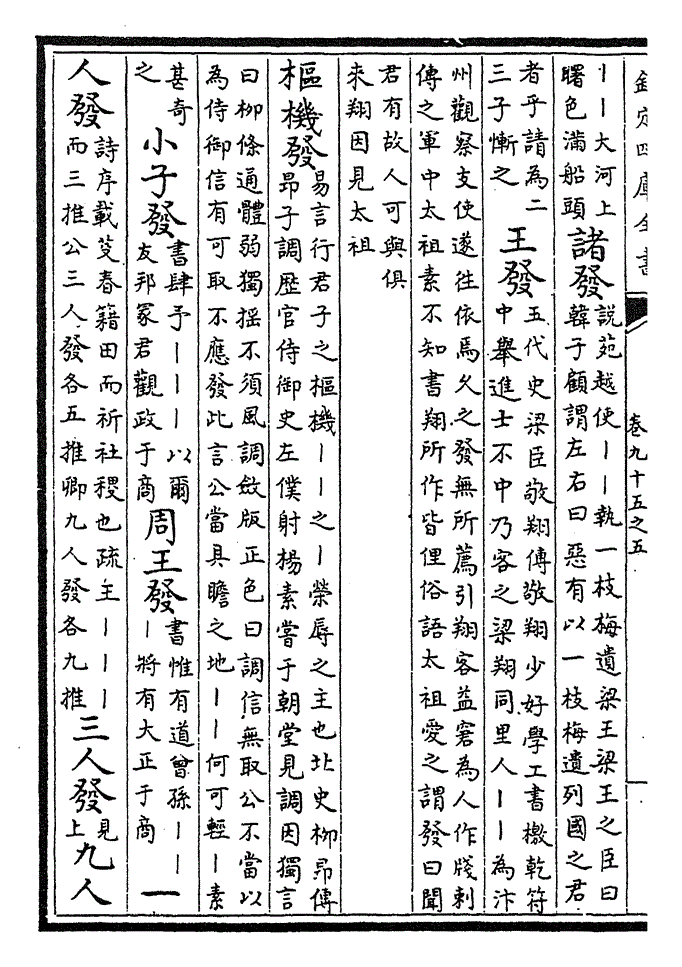 欽定四庫全書
卷九十五之五
丨丨大河上
曙色滿船頭
諸發
說苑越使丨丨執一枝梅遺梁王梁王之臣曰
韓子顧謂左右曰惡有以一枝梅遺列國之君
者乎請為二
三子慚之
王發
五代史梁臣敬翔傳敬翔少好學工書檄乾符
中舉進士不中乃客之梁翔同里人丨丨為汴
州觀察支使遂往依焉久之發無所薦引翔客益窘為人作牋刺
傳之軍中太祖素不知書翔所作皆俚俗語太祖愛之謂發曰聞
君有故人可與俱
來翔因見太祖
樞機發
易言行君子之樞機丨丨之丨榮辱之主也北史柳昂傳
昂子調歷官侍御史左僕射楊素嘗于朝堂見調因獨言
曰柳條通體弱獨摇不須風調斂版正色曰調信無取公不當以
為侍御信有可取不應發此言公當具瞻之地丨丨何可輕丨素
甚奇
之
小子發
書肆予丨丨丨以爾
友邦冢君觀政于商
周王發
書惟有道曾孫丨丨
丨將有大正于商
一
人發
詩序載芟春籍田而祈社稷也疏王丨丨丨
而三推公三人發各五推卿九人發各九推
三人發
見
上
九人